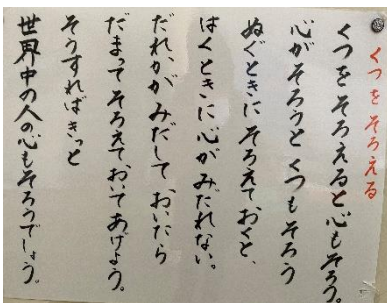 くつをそろえる
くつをそろえると心もそろう。
心がそろうとくつもそろう
ぬぐときにそろえておくと、
はくときに心がみだれない。
だれかがみだしておいたら
だまってそろえておいてあげよう。
そうすればきっと
世界中の人の心もそろうでしょう。